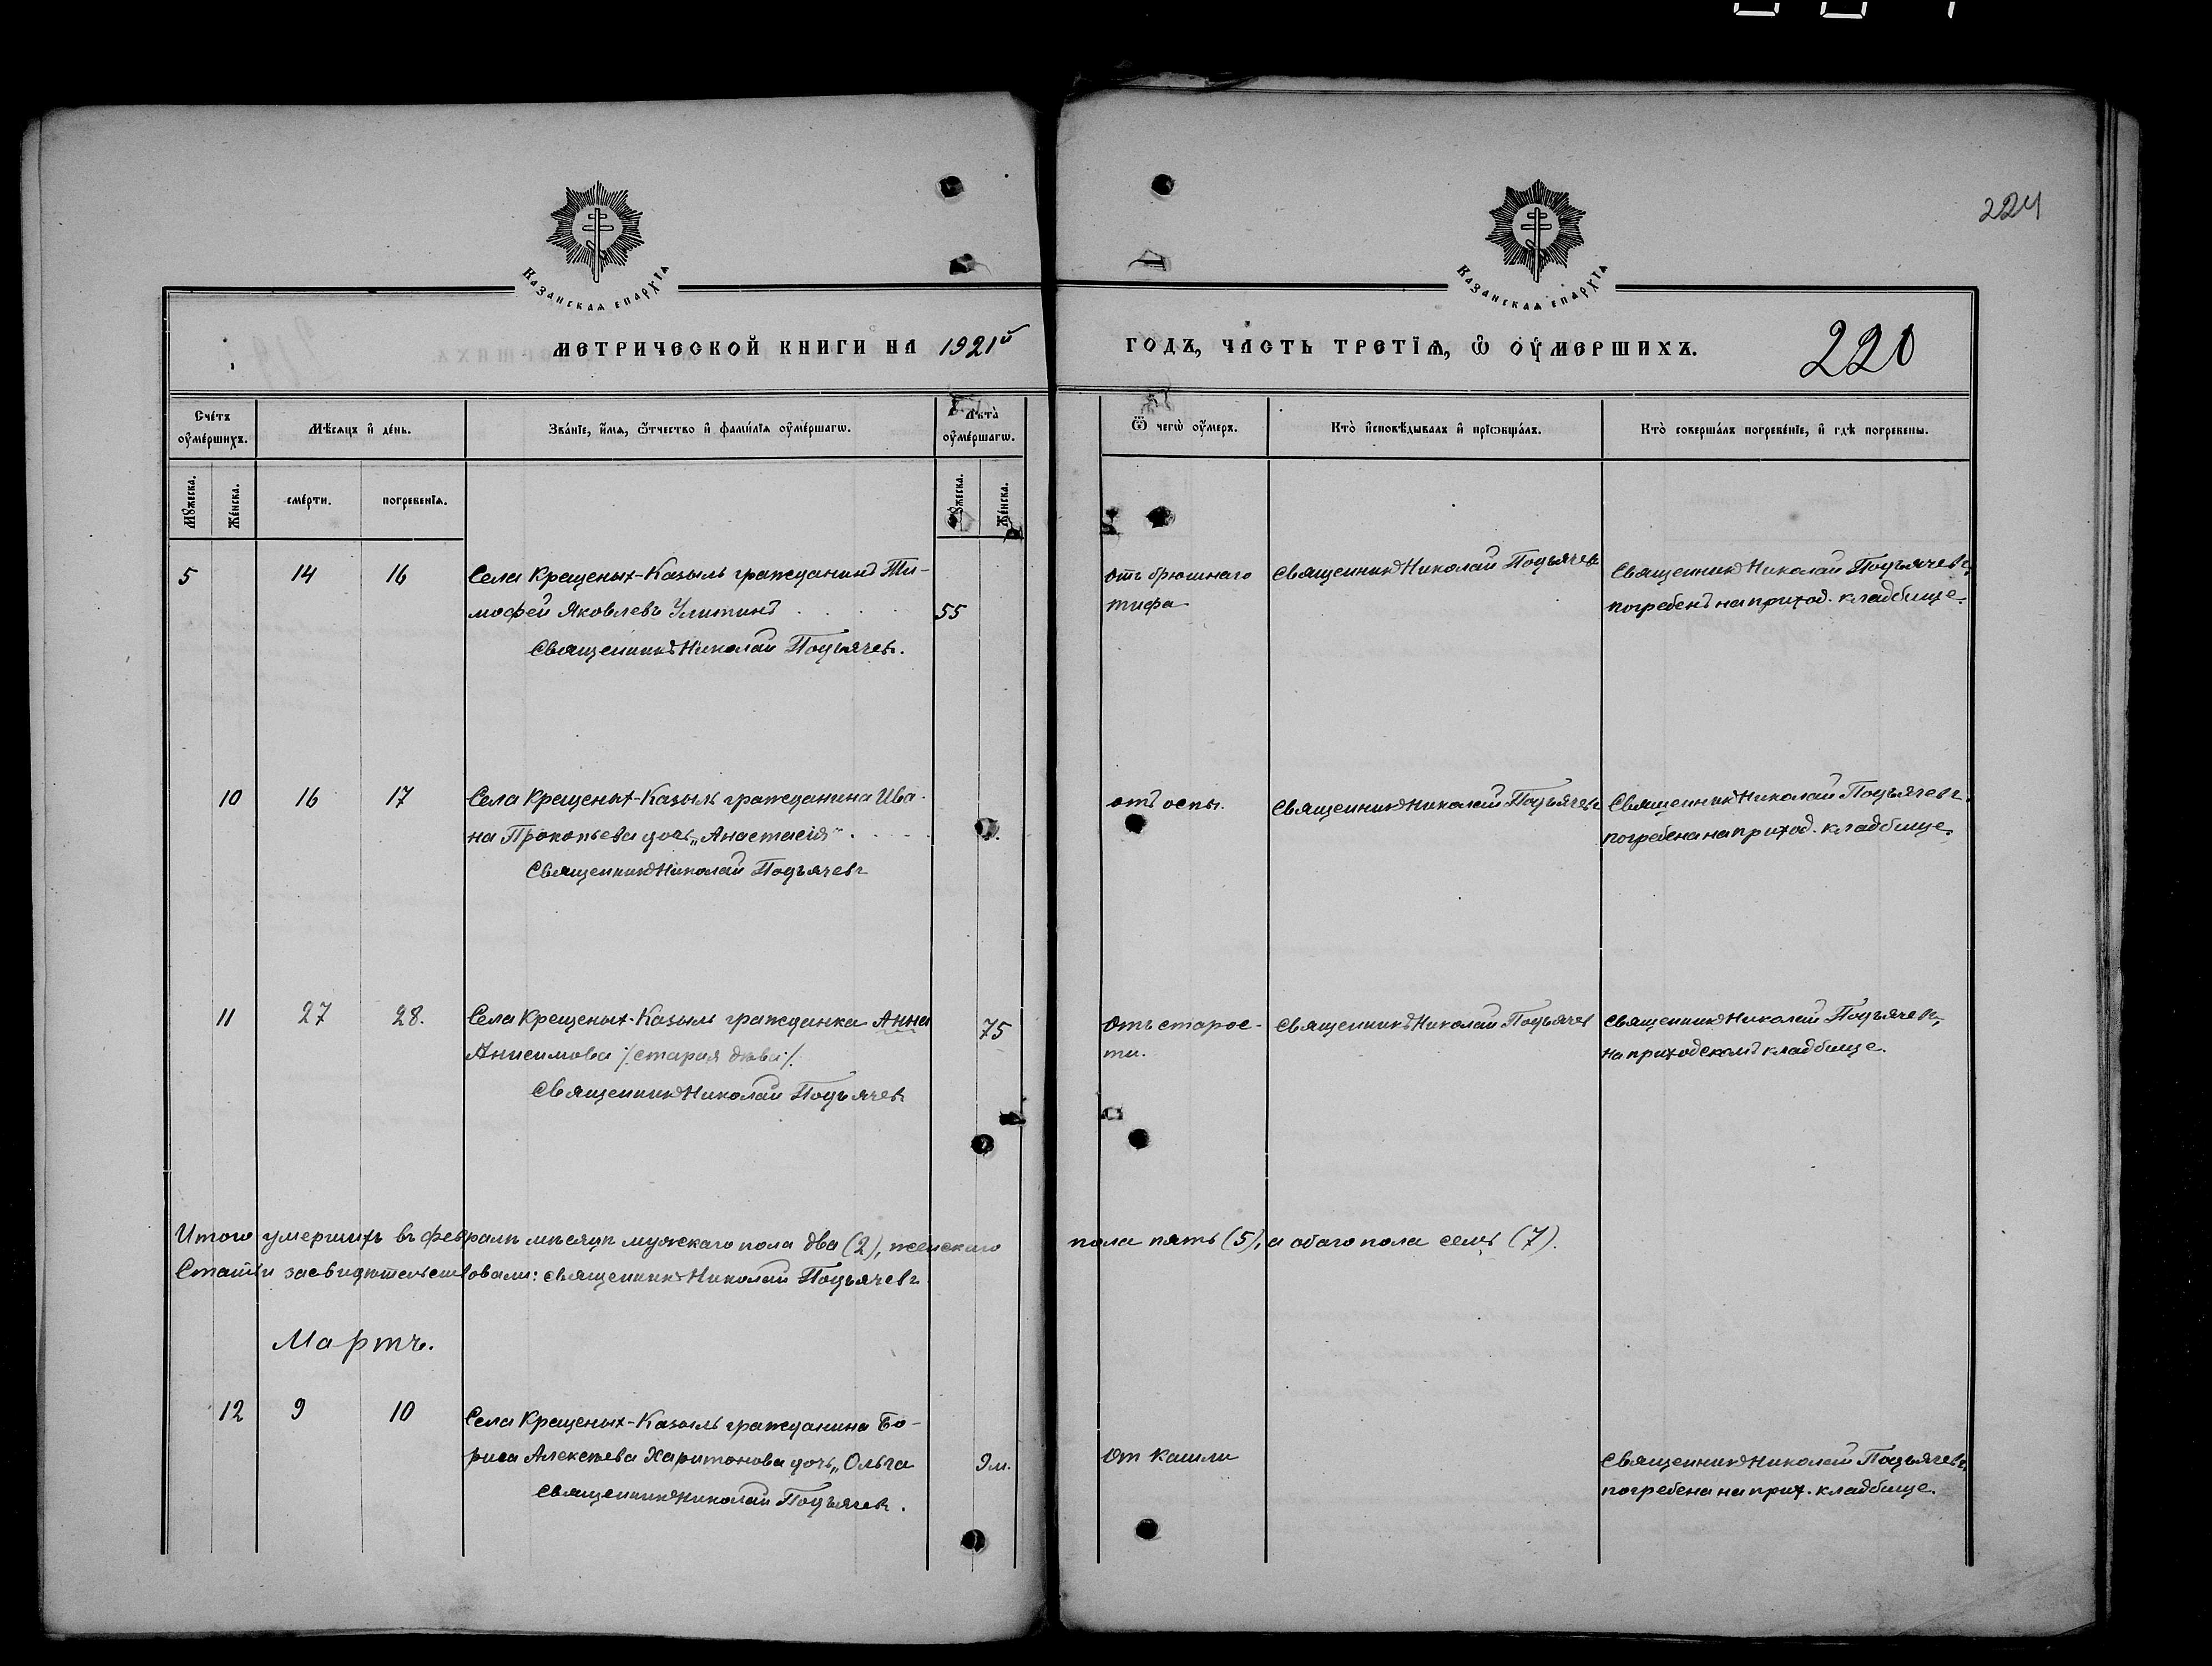 224
Казанская епархїя
Казанская епархїя
МЕТРИЧЕСКОЙ КНИГИ НА 1921й
ГОДЪ, ЧАСТЬ ТРЕТЇѦ, Ѿ ОУМЕРШИХЪ.
220
Счéтъ оу҆мéршихъ.
Мѣ́сяцъ и҆ дéнь.
Звáнїе, и҆́мѧ, ѻ҆́тчество и҆ фамѝлїѧ оу҆мéршагѡ.
Лѣ́та̀ оу҆мéршагѡ.
Ѿ чегѡ̀ оу҆́меръ.
Кто̀ и҆сповѣ́дывалъ и҆ прїѡбщáлъ.
Кто̀ совершáлъ погребéнїе, и҆ гдѣ̀ погребены.
Мꙋ́жеска.
Жéнска.
смéрти.
погребенїѧ.
Мꙋ́жеска.
Жéнска.
5 14 16 Села Крещеных-Казыль гражданинъ Ти-
мофей Яковлевъ Улитинъ 55
Священникъ Николай Подъячевъ.
отъ брюшнаго
тифа
Священникъ Николай Подъячевъ
Священникъ Николай Подъячевъ,
погребенъ на приход. кладбище.
10 16 17 Села Крещеных-Казыль гражданина Ива-
на Прокопьева дочь „Анастасія“
Священникъ Николай Подъячевъ
отъ оспы.
Священникъ Николай Подъячевъ
Священникъ Николай Подъячевъ.
погребена на приход. кладбище.
11 27 28. Села Крещеных-Казыль гражданка Анна 75
Анисимова /:старая дѣва:/.
Священникъ Николай Подъячевъ
Отъ старос-
ти.
Священникъ Николай Подъячев
Священникъ Николай Подъячевъ,
на приходскомъ кладбище.
Итого умершихъ въ февралѣ мѣсяцѣ мужскаго пола два (2), женскаго
пола пять (5), а обаго пола семь (7).
Статьи засвидѣтельствовали: священникъ Николай Подъячевъ
Мартъ.
12 9 10 Села Крещеных-Казыль гражданина Бо-
риса Алексѣева Харитонова дочь „Ольга 9м.
Священникъ Николай Подъячевъ.
От кашли
Священникъ Николай Подъячевъ,
погребена на прих. кладбище.